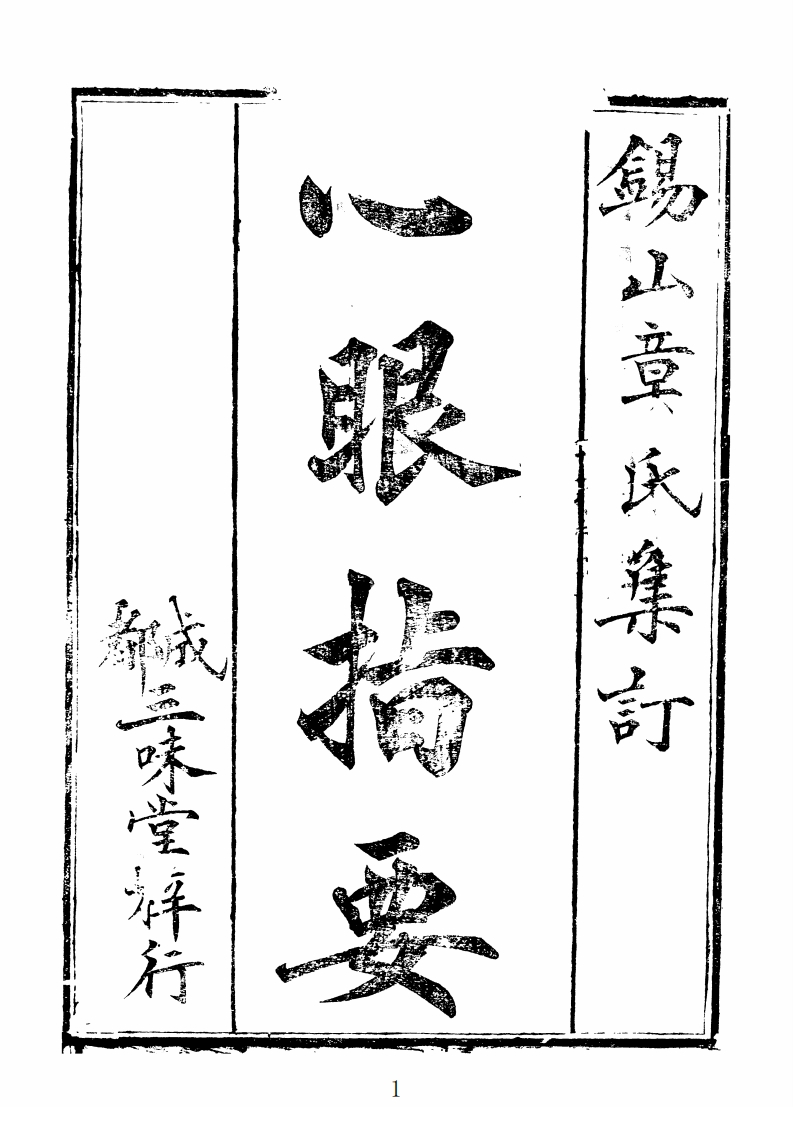 錫山章氏集訂
心眼指要
成都三味堂梓行
1